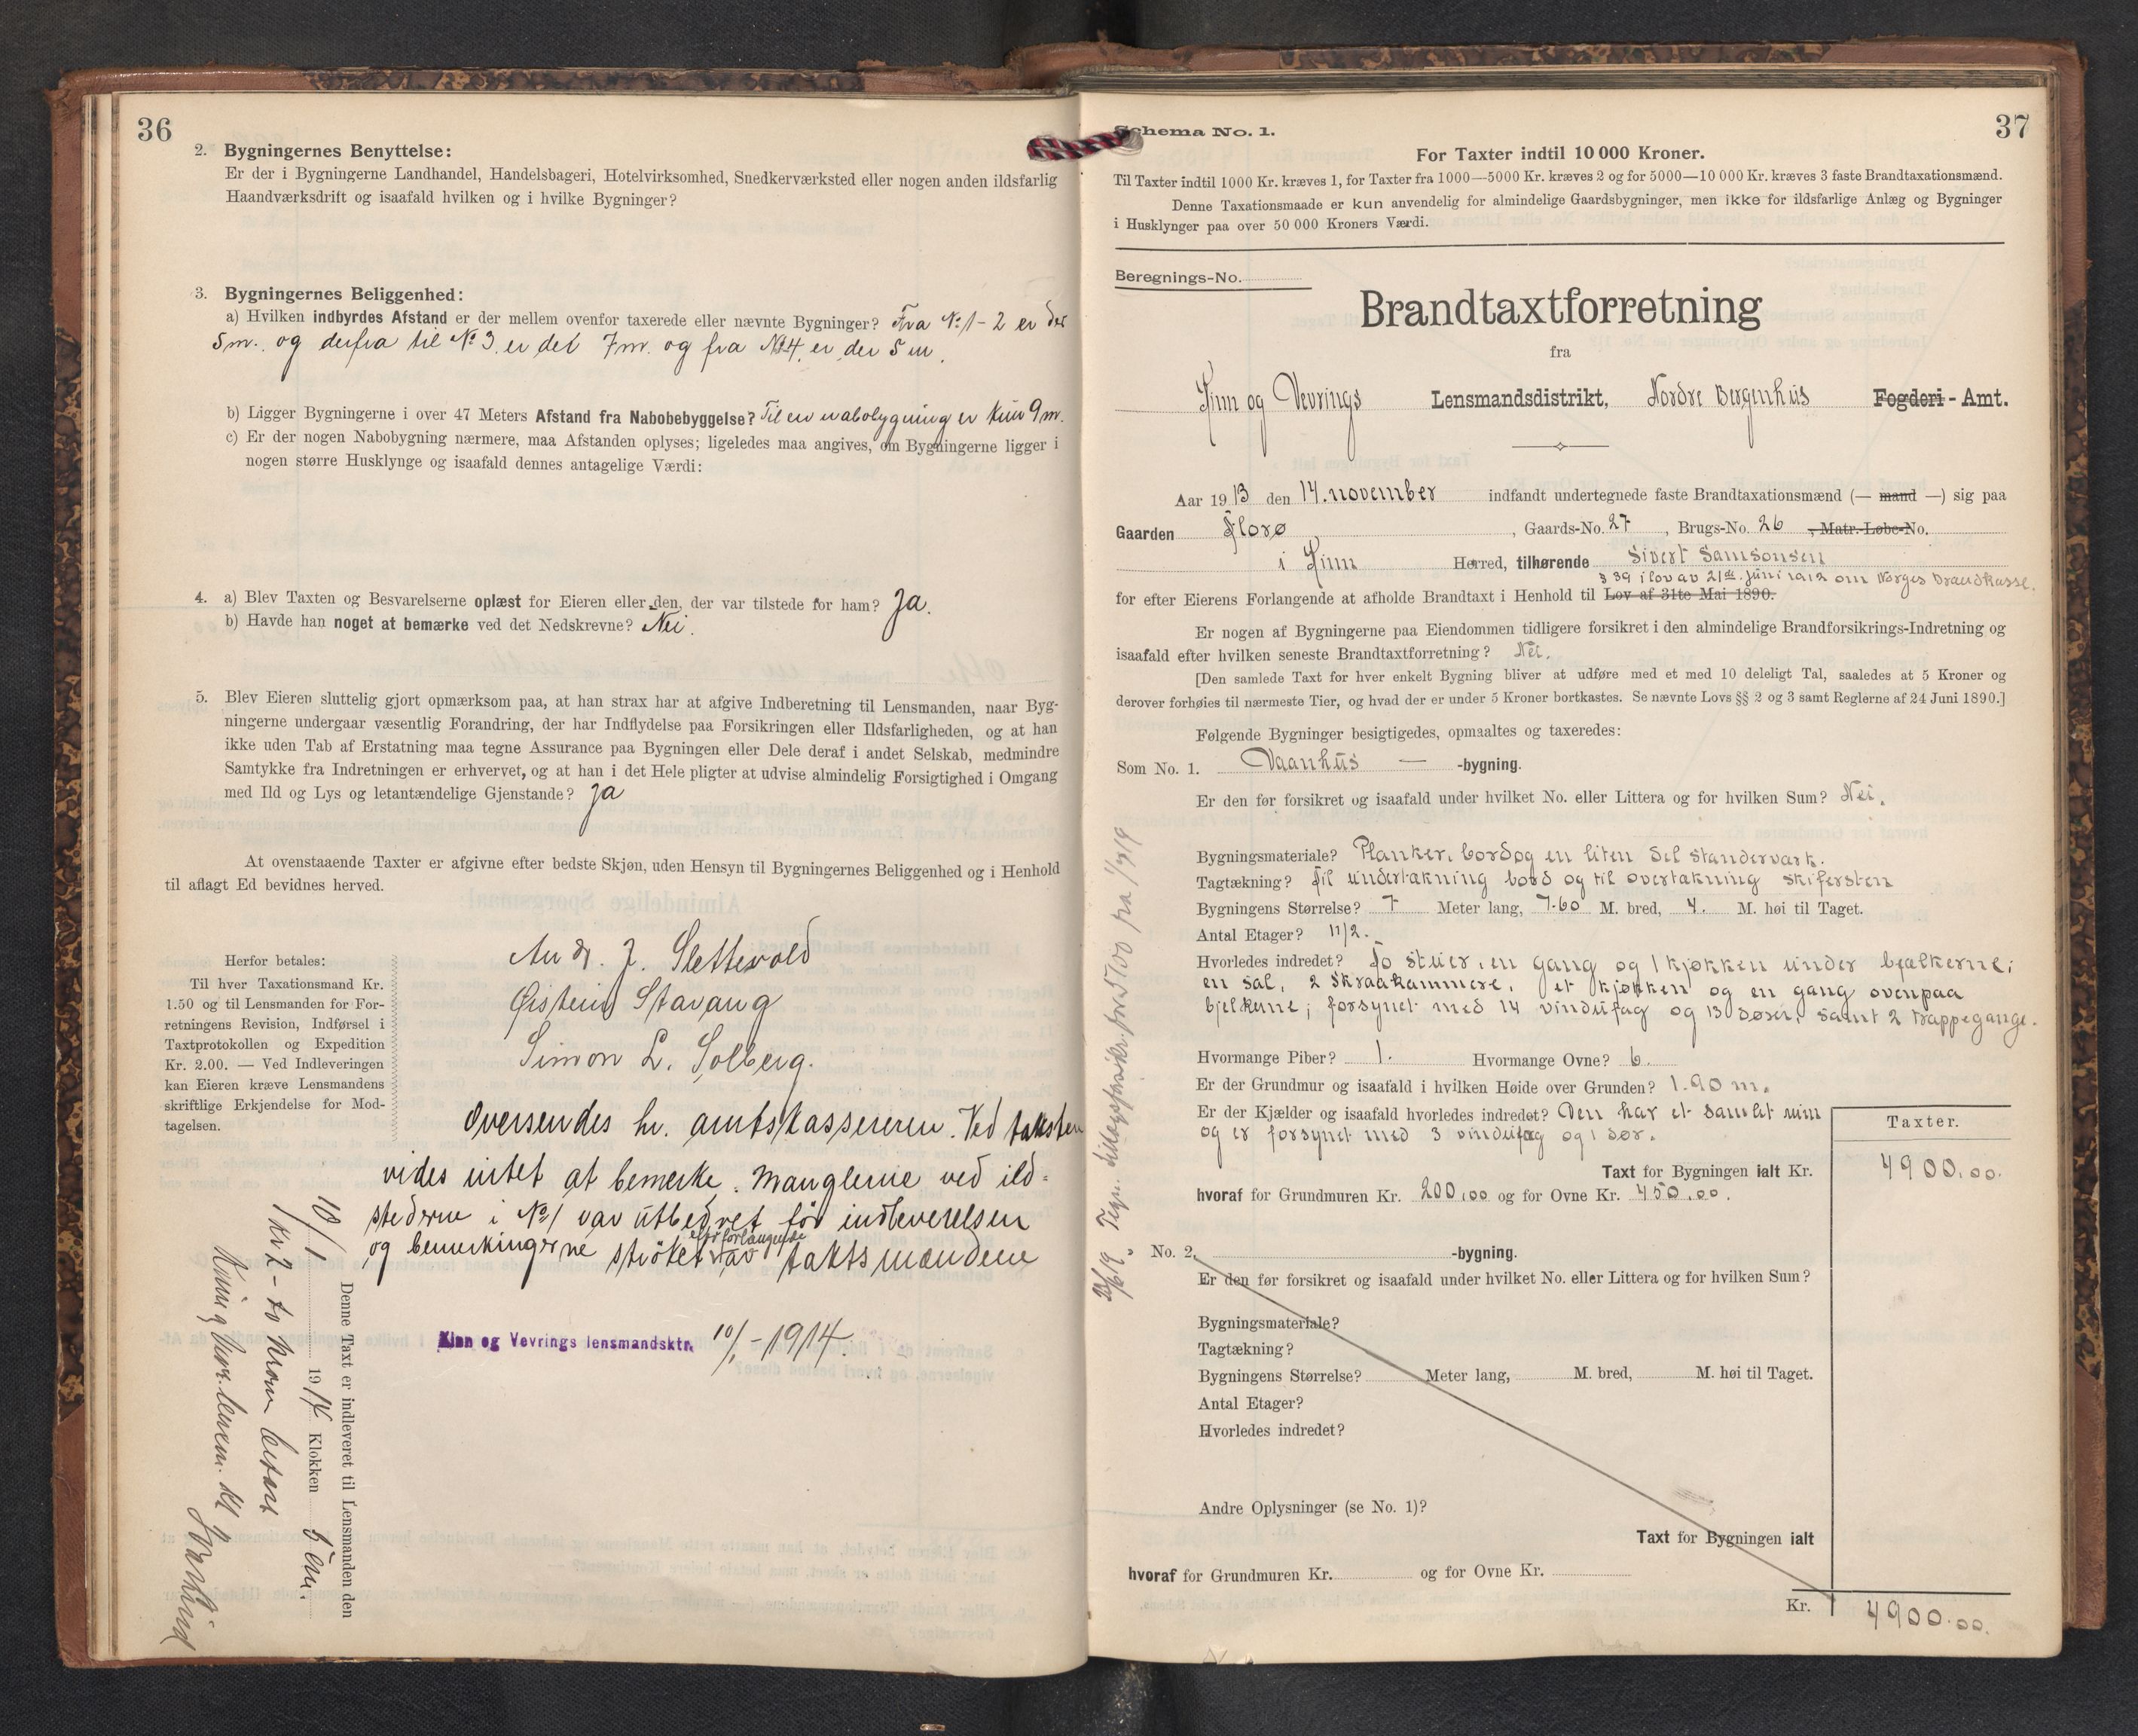 36
2. Bygningernes Benyttelse:
Er der i Bygningerne Landhandel, Handelsbageri, Hotelvirksomhed, Snedkerværksted eller nogen anden ildsfarlig
Haandværksdrift og isaafald hvilken og i hvilke Bygninger?
3. Bygningernes Beliggenhed:
a) Hvilken indbyrdes Afstand er der mellem ovenfor taxerede eller nævnte Bygninger? Fra No 1-2 er der
5 m. og derfra til No 3 er det 7 m. og fra No 4 er der 5 m.
b) Ligger Bygningerne i over 47 Meters Afstand fra Nabobebyggelse? Til en nabobygning er kun 9 m.
c) Er der nogen Nabobygning nærmere, maa Afstanden oplyses; ligeledes maa angives, om Bygningerne ligger i
nogen større Husklynge og isaafald dennes antagelige Værdi:
4. a) Blev Taxten og Besvarelserne oplæst for Eieren eller den, der var tilstede for ham? Ja.
b) Havde han noget at bemærke ved det Nedskrevne? Nei.
5. Blev Eieren sluttelig gjort opmærksom paa, at han strax har at afgive Indberetning til Lensmanden, naar Byg-
ningerne undergaar væsentlig Forandring, der har Indflydelse paa Forsikringen eller Ildsfarligheden, og at han
ikke uden Tab af Erstatning maa tegne Assurance paa Bygningen eller Dele deraf i andet Selskab, medmindre
Samtykke fra Indretningen er erhvervet, og at han i det Hele pligter at udvise almindelig Forsigtighed i Omgang
med Ild og Lys og letantændelige Gjenstande? Ja
At ovenstaaende Taxter er afgivne efter bedste Skjøn, uden Hensyn til Bygningernes Beliggenhed og i Henhold
til aflagt Ed bevidnes herved.
Herfor betales:
Til hver Taxationsmand Kr.
1.50 og til Lensmanden for For-
retningens Revision, Indførsel i
Taxtprotokollen og Expedition
Kr. 2.00. — Ved Indleveringen
kan Eieren kræve Lensmandens
skriftlige Erkjendelse for Mod-
tagelsen.
And. J. Slettevold
Øistein Stavang
Simon L. Solberg.
Oversendes hr. amtskassereren. Ved taksten
vides intet at bemerke. Manglerne ved ild-
stederne i No 1 var utbedret før indleverelsen
og bemerkingerne strøket efter forlangende av takstmændene
Kinn og Vevrings lensmandsktr. 10/1 - 1914.
Denne Taxt er indleveret til Lensmanden den
10/1 1914 Klokken 5 em.
Kr 2 - to kroner betalt
37
Schema No. 1.
For Taxter indtil 10 000 Kroner.
Til Taxter indtil 1000 Kr. kræves 1, for Taxter fra 1000—5000 Kr. kræves 2 og for 5000—10 000 Kr. kræves 3 faste Brandtaxationsmænd.
Denne Taxationsmaade er kun anvendelig for almindelige Gaardsbygninger, men ikke for ildsfarlige Anlæg og Bygninger
i Husklynger paa over 50 000 Kroners Værdi.
Beregnings-No.
Brandtaxtforretning
fra
Kinn og Vevrings Lensmandsdistrikt, Nordre Bergenhus Fogderi - Amt.
Aar 1913 den 14. november indfandt undertegnede faste Brandtaxationsmænd (— mand —) sig paa
Gaarden Florø, Gaards-No. 27, Brugs-No. 26, Matr.-Løbe-No.
i Kinn Herred, tilhørende Sivert Samsonsen
§ 39 i lov av 21de juni 1912 om Norges Brandkasse.
for efter Eierens Forlangende at afholde Brandtaxt i Henhold til Lov af 31te Mai 1890.
Er nogen af Bygningerne paa Eiendommen tidligere forsikret i den almindelige Brandforsikrings-Indretning og
isaafald efter hvilken seneste Brandtaxtforretning? Nei.
[Den samlede Taxt for hver enkelt Bygning bliver at udføre med et med 10 deleligt Tal, saaledes at 5 Kroner og
derover forhøies til nærmeste Tier, og hvad der er under 5 Kroner bortkastes. Se nævnte Lovs §§ 2 og 3 samt Reglerne af 24 Juni 1890.]
Følgende Bygninger besigtigedes, opmaaltes og taxeredes:
Som No. 1. Vaanhus — -bygning.
Er den før forsikret og isaafald under hvilket No. eller Littera og for hvilken Sum? Nei.
Bygningsmateriale? Planker, bord og en liten del standerværk.
Tagtækning? Til undertækning bord og til overtækning skifersten
Bygningens Størrelse? 7 Meter lang, 7.60 M. bred, 4. M. høi til Taget.
Antal Etager? 1 1/2.
Hvorledes indredet? To stuer, en gang og 1 kjøkken under bjelkerne;
en sal, 2 skraakammere, et kjøkken og en gang ovenpaa
bjelkerne; forsynet med 14 vindufag og 13 dører, samt 2 trappegange.
Hvormange Piber? 1. Hvormange Ovne? 6.
Er der Grundmur og isaafald i hvilken Høide over Grunden? 1.90 m.
Er der Kjælder og isaafald hvorledes indredet? Den har et samlet rum
og er forsynet med 3 vindufag og 1 dør.
Taxter.
Taxt for Bygningen ialt Kr. 4900.00.
hvoraf for Grundmuren Kr. 200.00 og for Ovne Kr. 450.00.
No. 2, -bygning.
Er den før forsikret og isaafald under hvilket No. eller Littera og for hvilken Sum?
Bygningsmateriale?
Tagtækning?
Bygningens Størrelse? Meter lang, M. bred, M. høi til Taget.
Antal Etager?
Hvorledes indredet?
Andre Oplysninger (se No. 1)?
Taxt for Bygningen ialt
hvoraf for Grundmuren Kr. og for Ovne Kr.
Kr. 4900.00.